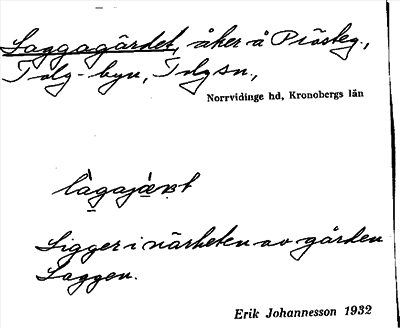 Laggagärdet, åker å Prästeg.,
Tolg-byn, Tolg sn.,
Norrvidinge hd, Kronobergs län
Ligger i närheten av gården
Laggen.
Erik Johannesson 1932